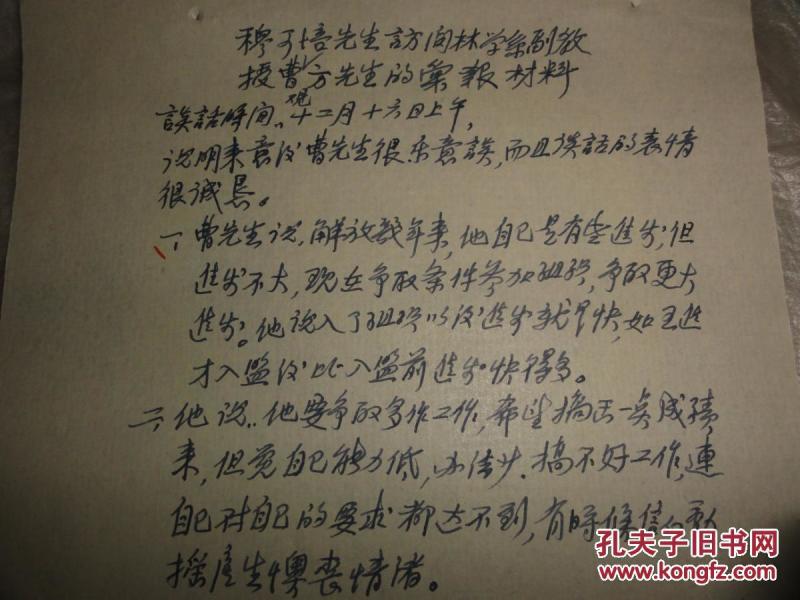 穆可培先生訪问林学系副教
授曹方先生的彙報材料
談話時间..十二月十六日上午,
说明来意后曹先生很乐意談,而且談話的表情
很诚恳。
一、曹先生说,解放幾年来,他自己是有些進步,但
進步不大,现在争取条件参加组织,争取更大
進步。他说入了组织以后進步就是快,如王進
才入盟后比入盟前進步快得多。
二、他说..他要争取多作工作,希望搞出一点成績
来,但觉自己能力低,办法少.搞不好工作,連
自己对自己的要求都达不到,有時候信心動
摇產生懊丧情渚。
孔夫子旧书网
www.kongfz.com